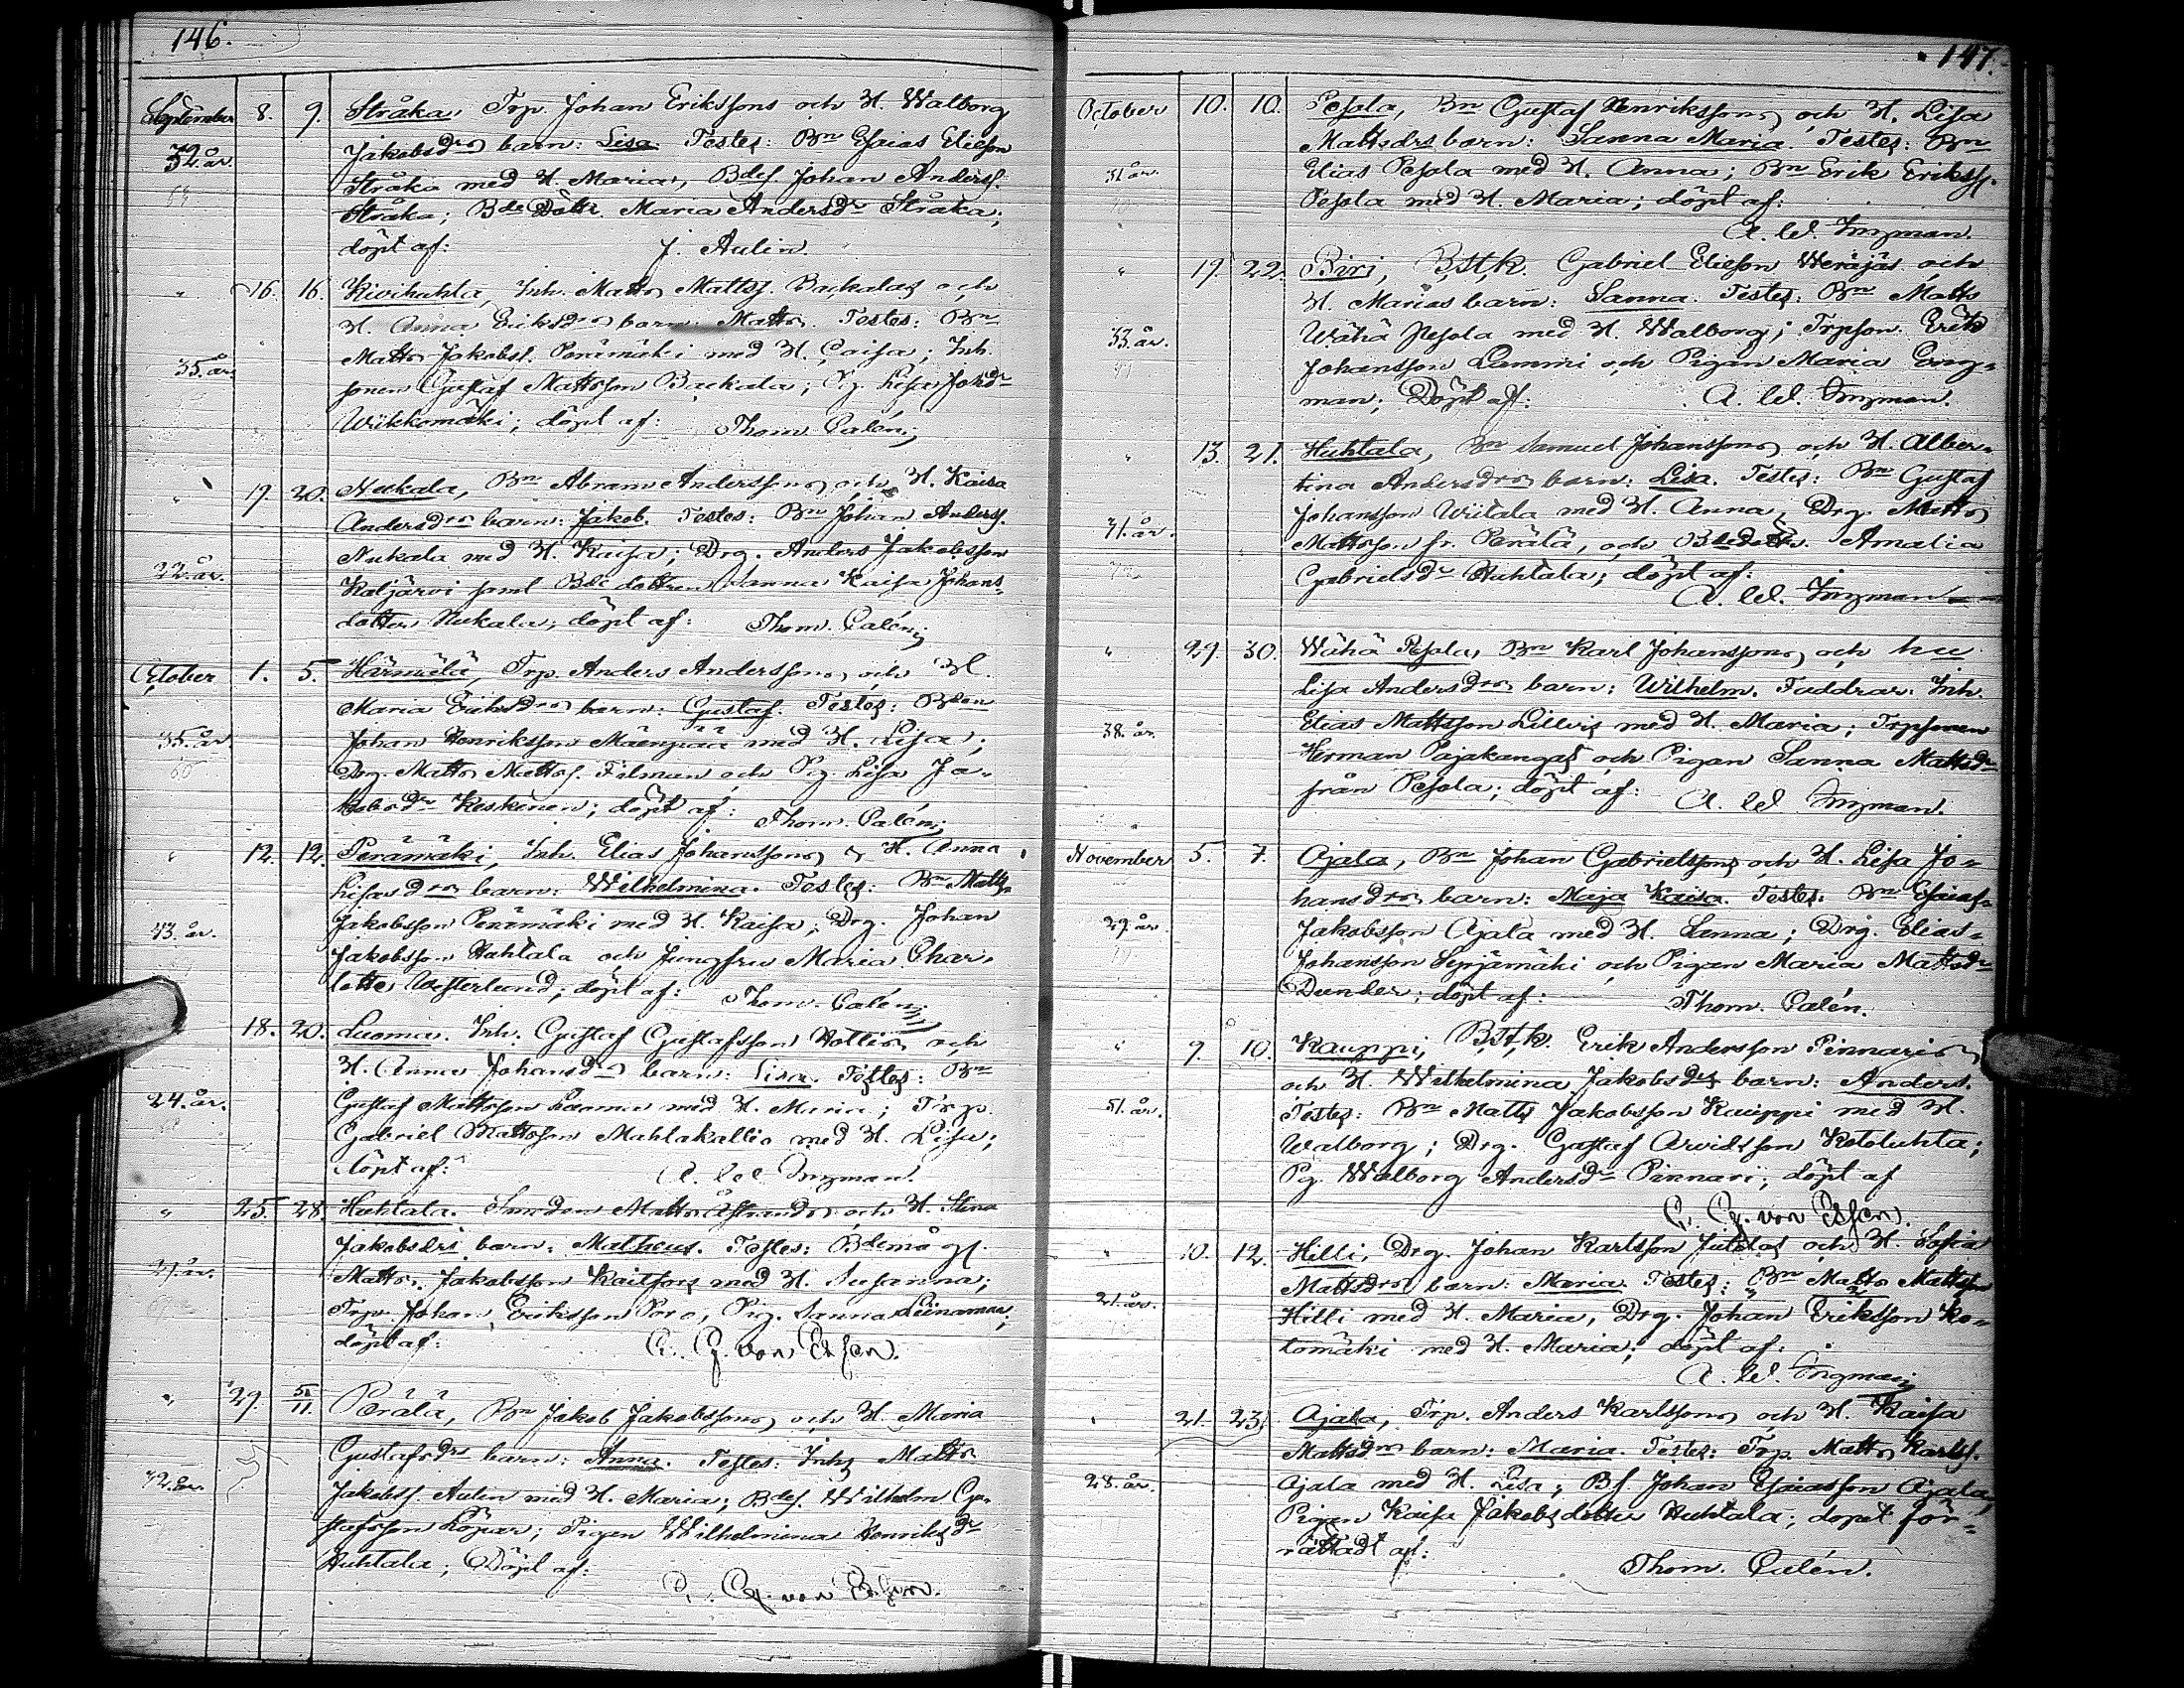 146.
September 8. 9. Stråka, Trp. Johan Erikssons och H. Walborg
Jakobsdrs barn: Lisa. Testes: Bn Esaias Elieson
32. år.
Stråka med H. Maria, Bdes. Johan Anderss.
Stråka; Bde Dottr. Maria Andersdr Stråka;
döpt af: J. Aulin.
" 16. 16. Kivihuhta, Inh. Matts Mattss. Backalas och
H. Anna Eriksdrs barn: Matts. Testes: Bn
Matts Jakobss. Perämäki med H. Caisa; Inh.
35. år.
sonen Gustaf Mattsson Backala; Pig. Lisa Johdr
Wiikkomäki; döpt af: Thom. Calén;
" 19. 20. Nukala, Bn Abram Anderssons och H. Kaisa
Andersdrs barn: Jakob. Testes: Bn Johan Anderss.
Nukala med H. Kaisa; Drg. Anders Jakobsson
22. år.
Kaljärvi samt Bde dottren Sanna Kaisa Johans-
dotter Nukala; döpt af: Thom. Calén;
October 1. 5. Härmälä, Trp. Anders Anderssons och H.
Maria Eriksdrs barn: Gustaf. Testes: Bden
35. år
Johan Henriksson Mäenpää med H. Lisa;
Drg. Matts Mattss. Filman och Pig. Lisa Ja-
kobsdr Keskinen; döpt af: Thom. Calén;
" 12. 12. Perämäki, Inh. Elias Johanssons & H. Anna
Lisasdrs barn: Wilhelmina. Testes: Bn Matts
Jakobsson Perämäki med H. Kaisa; Drg. Johan
43. år.
Jakobsson Huhtala och Jungfru Maria Char-
lotta Westerlund; döpt af: Thom. Calén;
18. 20. Luoma. Inh. Gustaf Gustafsson Hottis och
H. Anna Johansdrs barn: Lisa. Testes: Bn
24. år.
Gustaf Mattsson Luoma med H. Maria; Trp.
Gabriel Mattsson Mahlakallio med H. Lisa;
döpt af: A. W. Ingman.
" 25. 28. Huhtala. Smeden Matts Åstrands och H. Stina
Jakobsdrs barn: Matheus. Testes: Bdemågs.
Matts Jakobsson Kaitfors med H. Susanna;
Trp. Johan Eriksson Poro, Pig. Sanna Liinamaa;
döpt af: C. G. von Essen.
" 29. 5/11. Perälä, Bn Jakob Jakobssons och H. Maria
Gustafsdrs barn: Anna. Testes: Inhs Matts
42. år.
Jakobss. Aulin med H. Maria; Bdes. Wilhelm Gu-
stafsson Köpar; Pigan Wilhelmina Henriksdr
Huhtala; Döpt af:
C. G. von Essen.
147.
October 10. 10. Pesola, Bn Gustaf Henrikssons och H. Lisa
Mattsdrs barn: Sanna Maria. Testes: Bn
31. år.
Elias Pesola med H. Anna; Bn Erik Erikss.
Pesola med H. Maria; döpt af:
A. W. Ingman.
" 19. 22. Biri, Bstk. Gabriel Elieson Weräjäs och
H. Marias barn: Sanna. Testes: Bn Matts
33. år.
Wähä Pesola med H. Walborg; Trpson. Erik
Johansson Lammi och Pigan Maria Eng-
man; Döpt af: A. W. Ingman.
" 13. 21. Huhtala, Bn Samuel Johanssons och H. Alber-
tina Andersdrs barn: Lisa. Testes: Bn Gustaf
Johansson Wiitala med H. Anna; Drg. Matts
31. år.
Mattsson fr. Perälä, och Bdedottr. Amalia
Gabrielsdr Huhtala; döpt af:
A. W. Ingman
" 29. 30. Wähä Pesola, Bn Karl Johanssons och hu
Lisa Andersdrs barn: Wilhelm. Faddrar: Inh.
38. år.
Elias Mattsson Lillvis med H. Maria; Trpsonen
Herman Pajakangas och Pigan Sanna Mattsdr
från Pesola; döpt af: A. W. Ingman.
November 5. 7. Ajala, Bn Johan Gabrielssons och H. Lisa Jo-
hansdrs barn: Maja Kaisa. Testes: Bn Esaias
29. år.
Jakobsson Ajala med H. Sanna; Drg. Elias
Johansson Syrjämäki och Pigan Maria Mattsdr
Dunder; döpt af: Thom. Calén.
" 9. 10. Kauppi, Bstk. Erik Andersson Pinnaris
och H. Wilhelmina Jakobsdrs barn: Anders.
31. år.
Testes: Bn Matts Jakobsson Kauppi med H.
Walborg; Drg. Gustaf Arvidsson Kotoluhta;
Pg. Walborg Andersdr Pinnari; döpt af
C. G. von Essen.
" 10. 12. Hilli, Drg. Johan Karlsson Jutilas och H. Sofia
Mattsdrs barn: Maria. Testes: Bn Matts Mattsson
21. år.
Hilli med H. Maria, Drg. Johan Eriksson Ko-
tomäki med H. Maria; döpt af:
A. W. Ingman;
21. 23. Ajala, Trp. Anders Karlssons och H. Kaisa
Mattsdrs barn: Maria. Testes: Trp. Matts Karlss.
28. år.
Ajala med H. Lisa; Bs. Johan Esaiasson Ajala,
Pigan Kaisa Jakobsdotter Huhtala; döpet för-
rättadt af:
Thom. Calén.